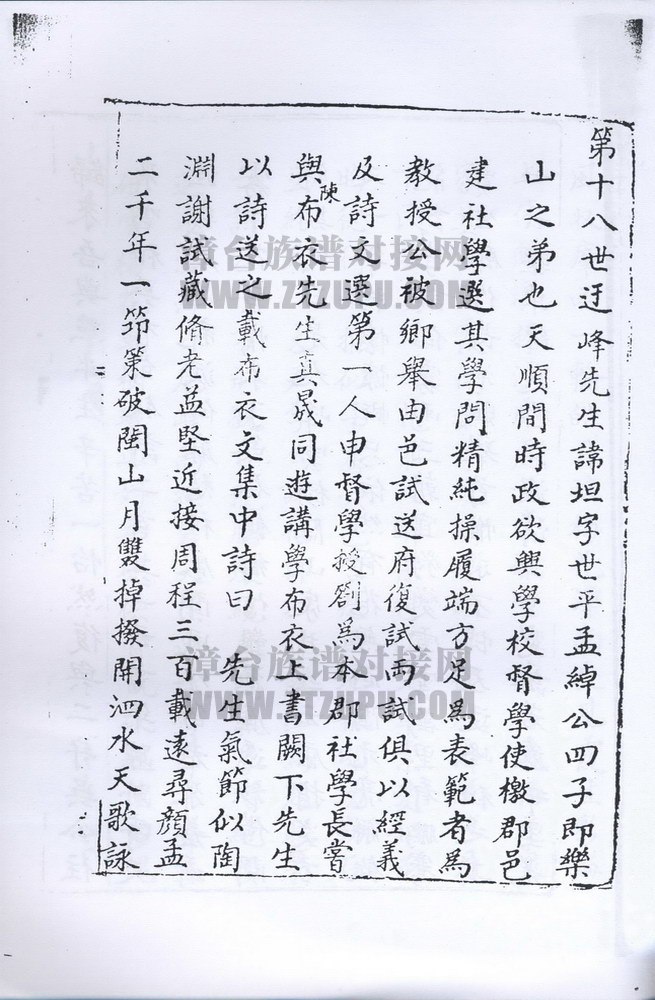 第十八世迂峰先生諱坦字世平孟綽公四子即樂
山之弟也天順間時政欲興學校督學使檄郡邑
建社學選其學問精純操履端方足為表範者為
教授公被鄉舉由邑試送府復試兩試俱以經義
及詩文選第一人申督學授劄為本郡社學長嘗
與陳布衣先生真晟同遊講學布衣上書闕下先生
以詩送之載布衣文集中詩曰 先生氣節似陶
淵謝試藏脩老益堅近接周程三百載遠尋顏孟
二千年一笻策破閩山月雙掉撥開泗水天歌詠
漳台族谱对接网
WWW.ZTZUPU.COM
漳台族谱对接网
WWW.ZTZUPU.COM